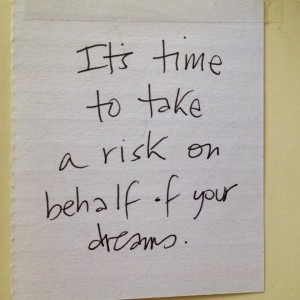 It's time
to take
a risk on
behalf of your
dreams.